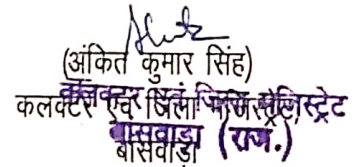 (अंकित कुमार सिंह)
कलक्टर एवं जिला मजिस्ट्रेट
कलक्टर एवं जिला मजिस्ट्रेट,
बांसवाड़ा (राज.)
बांसवाड़ा